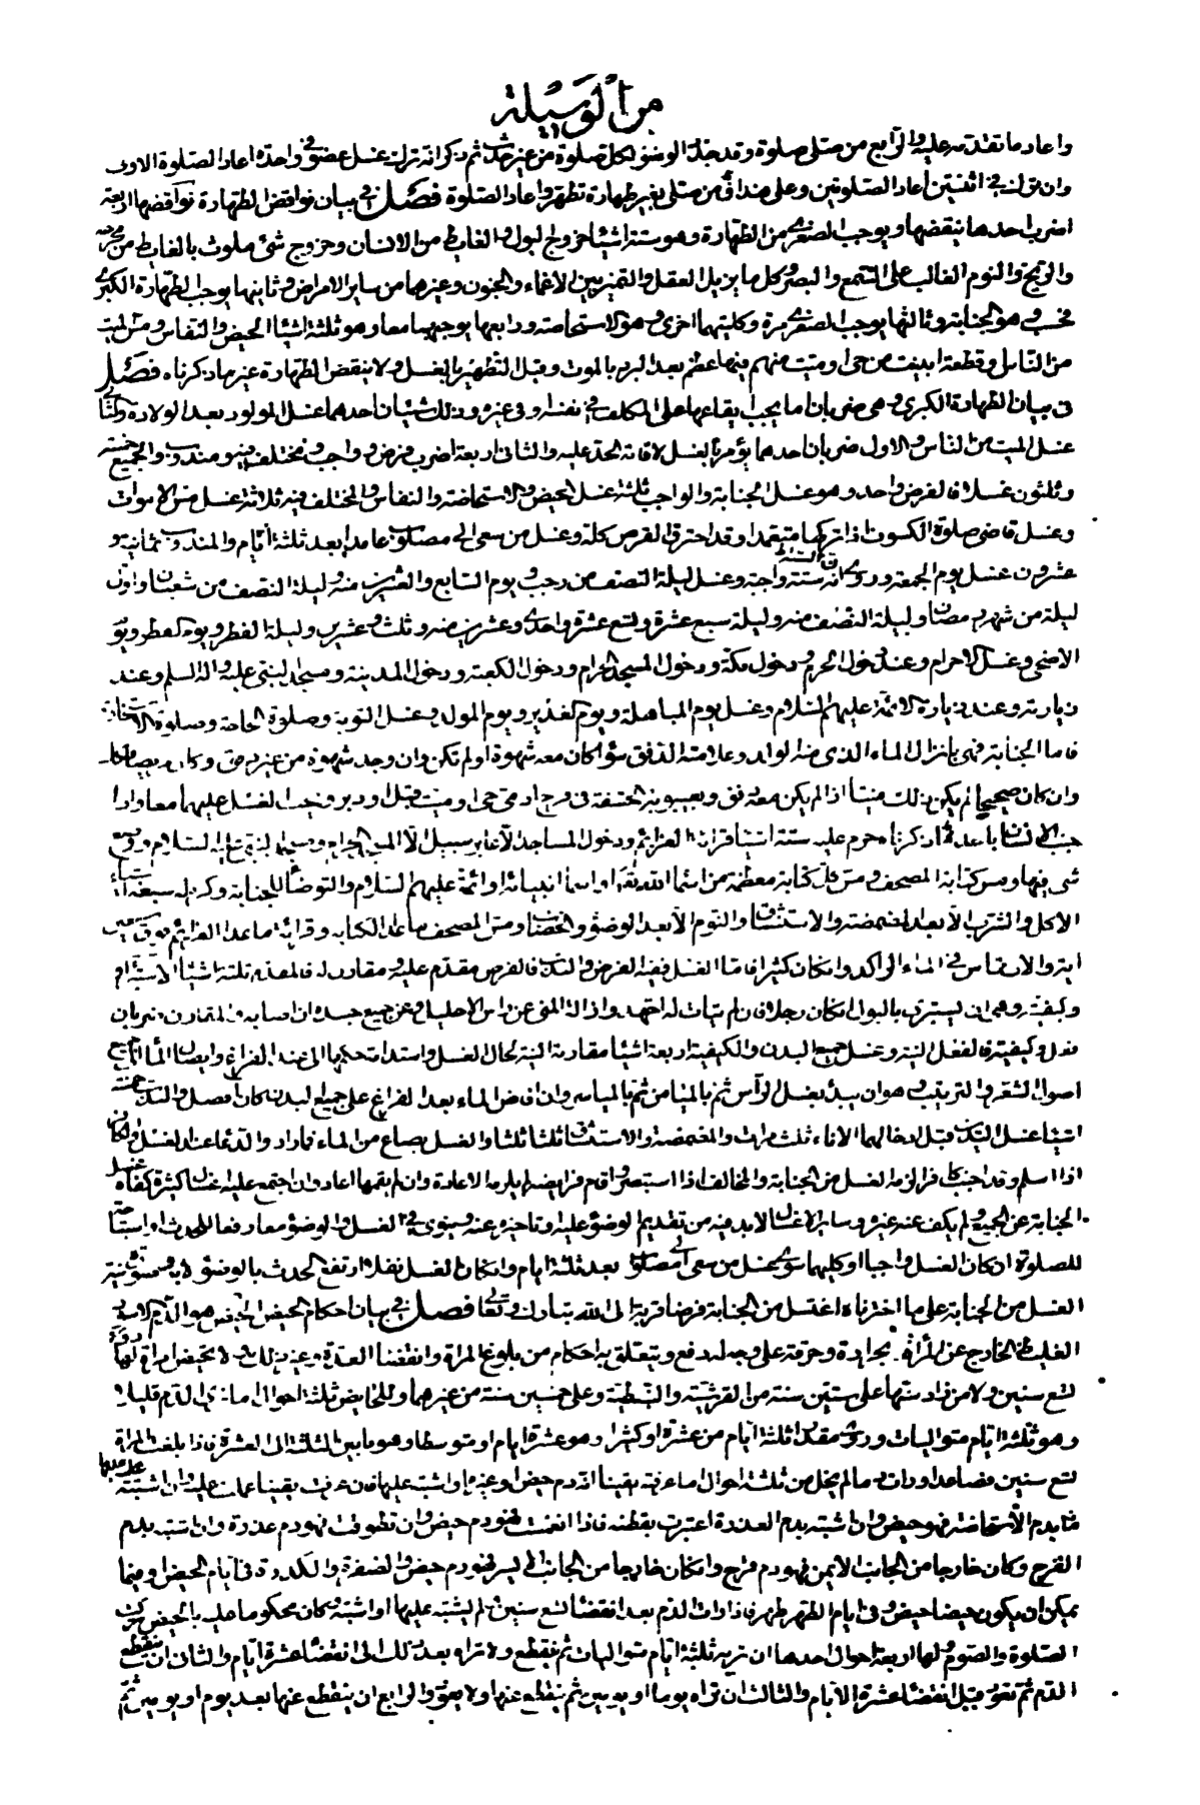 من الوسيلة
واعاد ما تقدمه عليه والرابع من صلى صلوة وقد جدد الوضوء لكل صلوة من غير حدث ثم ذكر انه ترك غسل عضو في واحدة اعاد الصلوة الاولى
وان ترك في اثنتين اعاد الصلوتين وعلى هذا فان من صلى بغير طهارة تطهر واعاد الصلوة فصل في بيان نواقض الطهارة نواقضها اربعة
اضرب احدها ينقضها ويوجب الصغرى من الطهارة وهو ستة اشياء خروج البول والغايط من الانسان وخروج شئ ملوث بالغايط من مخرجه
والريح والنوم الغالب على السمع والبصر وكل ما يزيل العقل والتمييز من الاغماء والجنون وغيرهما من ساير الامراض وثانيها يوجب الطهارة الكبرى
فحسب وهو الجنابة وثالثها يوجب الصغرى مرة وكلتيهما اخرى وهو الاستحاضة ورابعها يوجبهما معا وهو ثلثة اشياء الحيض والنفاس ومس الميت
من الناس وقطعة ابينت من حى او ميت منهم فيها عظم بعد البرد بالموت وقبل التطهير بالغسل ولا ينقض الطهارة غير ما ذكرناه فصل
فى بيان الطهارة الكبرى وهى ضربان ما يجب ايقاعها على المكلف في نفسه او في غيره وذلك شيئان احدهما غسل المولود بعد الولادة والثانى
غسل الميت من الناس والاول ضربان احدهما يؤمر بالغسل لاقامة الحد عليه والثانى اربعة اضرب فرض وواجب ومختلف فيه ومندوب والجميع خمسة
وثلثون غسلا فالفرض واحد وهو غسل الجنابة والواجب ثلثة غسل الحيض والاستحاضة والنفاس والمختلف فيه ثلاثة غسل مس الاموات
وغسل قاضى صلوة الكسوف اذا تركها متعمدا وقد احترق القرص كله وغسل من سعى الى مصلوب عامدا بعد ثلثة ايام والمندوب ثمانية و
عشرون غسل يوم الجمعة وروى انه سنة واجبة وغسل ليلة النصف من رجب ويوم السابع والعشرين منه وليلة النصف من شعبان واول
ليلة من شهر رمضان وليلة النصف منه وليلة سبع عشرة وتسع عشرة واحدى وعشرين منه وثلث وعشرين وليلة الفطر ويوم الفطر ويوم
الاضحى وغسل الاحرام وعند دخول الحرم ودخول مكة ودخول المسجد الحرام ودخول الكعبة ودخول المدينة ومسجد النبى عليه واله السلم وعند
زيارته وعند زيارة الائمة عليهم السلام وغسل يوم المباهلة ويوم الغدير ويوم المولد وغسل التوبة وصلوة الحاجة وصلوة الاستخارة
فاما الجنابة فهى بانزال الماء الذى منه الولد وعلامته الدفق سواء كان معه شهوة او لم تكن وان وجد شهوة من غير دفق وكان مريضا فكذلك
وان كان صحيحا لم يكن ذلك منيا اذا لم يكن معه دفق وبغيبوبة الحشفة فى فرج ادمى حى او ميت قبل او دبر وتجب الغسل عليهما معا واذا
جنب الانسان باحد ما ذكرناه حرم عليه ستة اشياء قراءة العزائم ودخول المساجد الا عابر سبيل الا المسجد الحرام ومسجد النبى عليه السلام ووضع
شى فيها ومس كتابة المصحف ومس كل كتابة معظمة من اسماء الله تعالى او اسماء انبيائه او ائمة عليهم السلام والتوضأ للجنابة وكره له سبعة اشياء
الاكل والشرب الا بعد المضمضة والاستنشاق والنوم الا بعد الوضوء والخضاب ومس المصحف ما عدا الكتابة وقراءة ما عدا العزائم فوق سبعين
اية والارتماس في الماء الراكد وان كان كثيرا فاما الغسل ففيه الفرض والندب فالفرض مقدم عليه ومقارن له فالمقدم ثلثة اشياء الاستبراء
وكيفيته وهو ان يستبرئ بالبول ان كان رجلا فان لم يتأت له اجتهد وازالة المنى عن رأس الاحليل وعن جميع جسده ان اصابه والمقارن ضربان
فعل وكيفية فالفعل النية وغسل جميع البدن والكيفية اربعة اشياء مقارنة النية لحال الغسل واستدامة حكمها الى عند الفراغ وايصال الماء الى جميع
اصول الشعر والترتيب وهو ان يبدأ بغسل الرأس ثم بالميامن ثم بالمياسر وان افاض الماء بعد الفراغ على جميع البدن كان افضل والندب خمسة
اشياء غسل اليدين قبل ادخالهما الاناء ثلث مرات والمضمضة والاستنشاق ثلثا ثلثا والغسل بصاع من الماء فما زاد والدعاء عند الغسل والكافر
اذا اسلم وقد اجنب كافرا لزمه الغسل من الجنابة والمخالف اذا استبصر واقام فرايضه لم يلزمه الاعادة وان لم يقمها اعاد وان اجتمع عليه اغسال كثيرة كفاه غسل
الجنابة عن الجميع ولم يكف عنه غيره وساير الاغسال لا بد فيه من تقديم الوضوء عليه او تاخيره عنه وينوى في الغسل والوضوء معا رفعا للحدث او استباحة
للصلوة ان كان الغسل واجبا او كليهما سوى غسل من سعى الى مصلوب بعد ثلثة ايام وان كان الغسل نفلا ارتفع الحدث بالوضوء لا به وصورة نية
الغسل من الجنابة على ما اخترناه اغتسل من الجنابة فرضا قربة الى الله تبارك وتعالى فصل في بيان احكام الحيض الحيض هو الدم الاسود
الغليظ الخارج عن المرأة بحرارة وحرقة على وجه له دفع ويتعلق به احكام من بلوغ المراة وانقضاء العدة وغير ذلك ولا تحيض امراة لها دون
تسع سنين ولا من زاد سنها على ستين سنة من القرشية والنبطية وعلى خمسين سنة من غيرهما وللحايض ثلثة احوال اما ترى الدم قليلا
وهو ثلثة ايام متواليات وروى مقدار ثلثة ايام من عشرة او كثيرا وهو عشرة ايام او متوسطا وهو ما بين الثلثة الى العشرة فاذا بلغت المراة
تسع سنين فصاعدا ورات دما لم يخل من ثلثة احوال اما عرفته يقينا انه دم حيض او غيره او اشتبه عليها فان عرفت يقينا عملت عليه وان اشتبه عليها
دما بدم الاستحاضة فهو حيض وان اشتبه بدم العذرة اعتبرت بقطنة فاذا انغمست فهو دم حيض وان تطوقت فهو دم عذرة وان اشتبه بدم
القرح وكان خارجا من الجانب الايمن فهو دم قرح وان كان خارجا من الجانب الايسر فهو دم حيض والصفرة والكدرة في ايام الحيض او فيما
يمكن ان يكون حيضا حيض وفى ايام الطهر طهر فاذا رات الدم بعد انقضاء تسع سنين ولم يشتبه عليها او اشتبه وكان محكوما عليه بالحيض تركت
الصلوة والصوم ولها اربعة احوال احدها ان تريه ثلثة ايام متواليات ثم ينقطع ولا تراه بعد ذلك الى انقضاء عشرة ايام والثانى ان ينقطع
الدم ثم تعود قبل انقضاء عشرة الايام والثالث ان تراه يوما او يومين ثم ينقطع عنها ولا يعود والرابع ان ينقطع عنها بعد يوم او يومين ثم